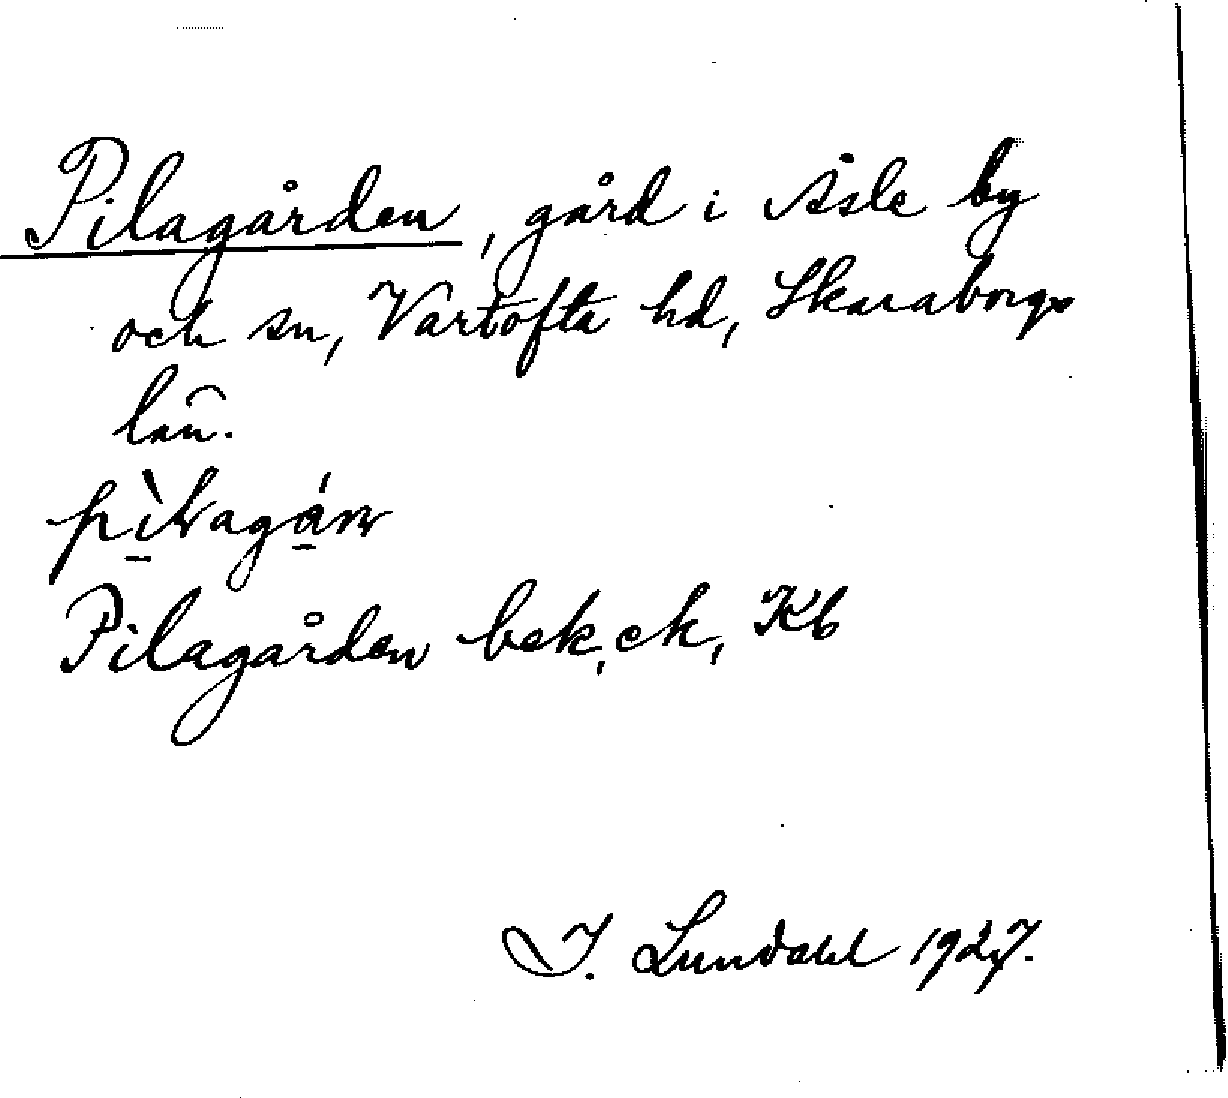 Pilagården, gård i Åsle by
och sn, Vartofta hd, Skaraborgs
län.
Pilagården bek, ek, Kb
I. Lundahl 1927.